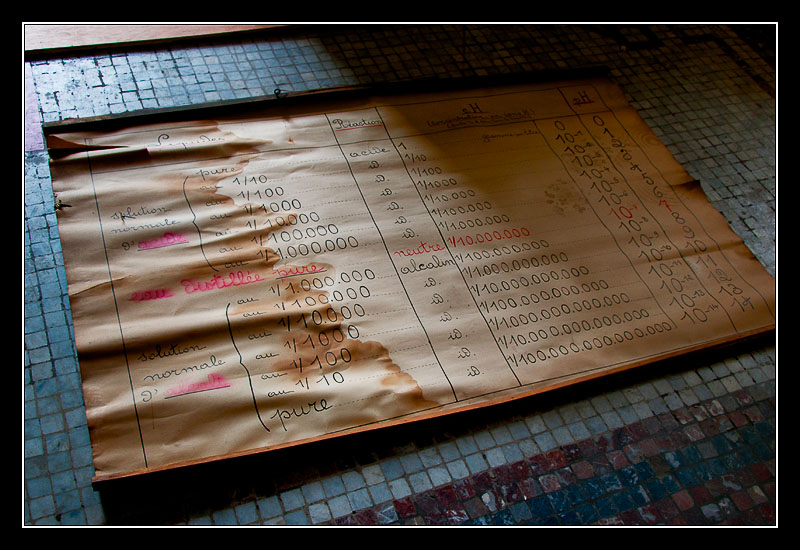 Réaction cH pH
pure acide 1. 0 0
au 1/10 id. 1/10 10-1 1
au 1/100 id. 1/100 10-2 2
au 1/1000 id. 1/1000 10-3 3
solution au 1/10.000 id. 1/10.000 10-4 4
normale au 1/100.000 id. 1/100.000 10-5 5
d' au 1/1.000.000 id. 1/1.000.000 10-6 6
eau distillée pure neutre 1/10.000.000 10-7 7
au 1/1.000.000 alcalin 1/100.000.000 10-8 8
au 1/100.000 id. 1/1.000.000.000 10-9 9
au 1/10.000 id. 1/10.000.000.000 10-10 10
solution au 1/1000 id. 1/100.000.000.000 10-11 11
normale au 1/100 id. 1/1.000.000.000.000 10-12 12
d' au 1/10 id. 1/10.000.000.000.000 10-13 13
pure id. 1/100.000.000.000.000 10-14 14